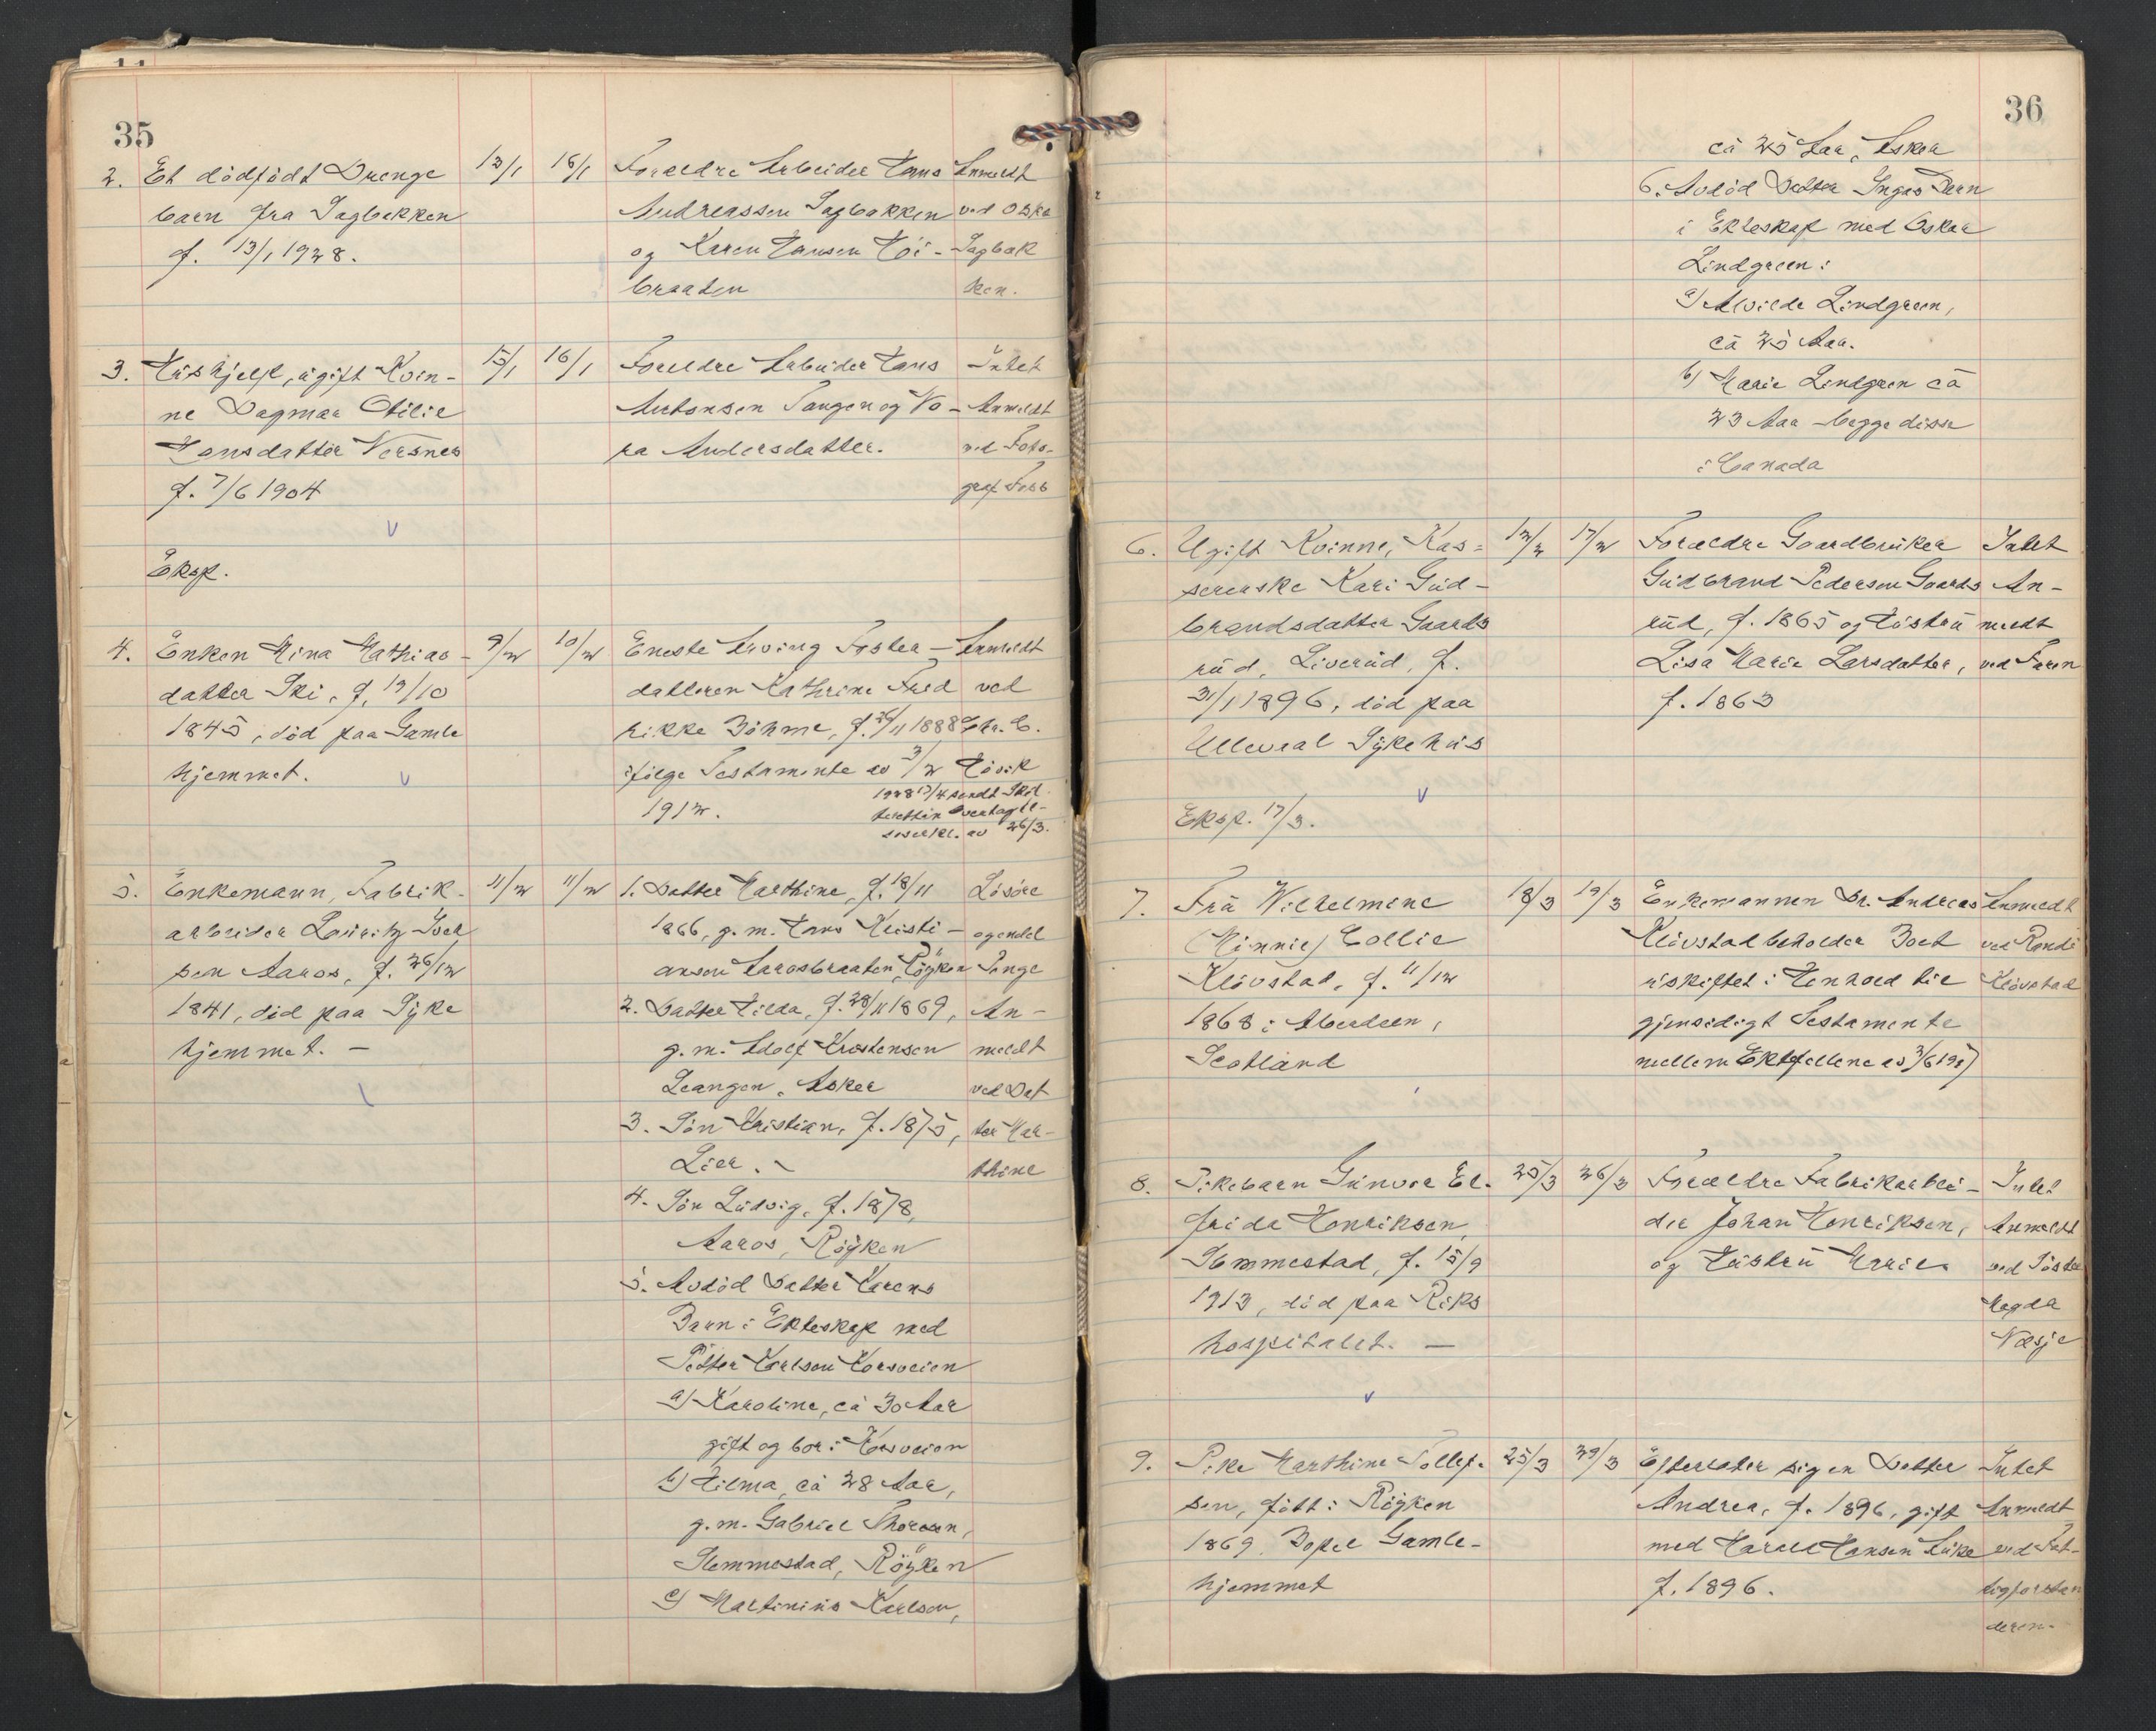 35
2. Et dödfödt Drenge
barn fra Sagbakken
f. 13/1 1928.
13/1 16/1
Forældre Arbeider Hans
Andreassen Sagbakken
og Karen Hansen Höi-
braaten
Anmeldt
ved Oska
Sagbak
ken.
3. Hüshjelp, ügift Kvin-
ne Dagmar Otilie
Hansdatter Nersnes
f. 7/6 1904
Eksp.
15/1 16/1
Foreldre Arbeider Hans
Antonsen Tangen og No-
ra Andersdatter.
Intet
Anmeldt
ved Foto-
graf Foss
4. Enken Mina Mathias-
datter Ski, f. 19/10
1845, död paa Gamle
hjemmet.
9/2 10/2
Eneste Arving Foster-
datteren Kathrine Fred
rikke Böhme, f. 26/11 1888
ifölge Testamente av 3/2
1912.
Anmeldt
ved
Chr. C.
Hövik
1928 17/4 sendt Skif
teretten Overtagel-
seserkl. av 26/3.
5. Enkemann, Fabrik-
arbeider Lauritz Iver
sen Aaros, f. 26/12
1841, död paa Syke
hjemmet. -
11/2 11/2
1. Datter Marthine, f. 18/11
1866, g. m. Hans Kristi-
ansen Aarosbraaten, Röyken
2. Datter Hilda, f. 28/11 1869,
g. m. Adolf Kristensen
Leangen, Asker
3. Sön Kristian, f. 1875,
Lier. -
4. Sön Lüdvig, f. 1878,
Aaros, Röyken
5. Avdöd Datter Karens
Barn i Ekteskap med
Petter Karlsen Korsveien
a) Karoline, ca 30 Aar
gift og bor i Korsveien
b) Hilma, ca 28 Aar,
g. m. Gabriel Thoresen,
Slemmestad, Röyken
c) Martinius Karlsen,
Lösöre
og endel
Penge
An-
meldt
ved Dat
ter Mar-
thine
36
ca 25 Aar, Asker
6. Avdöd Datter Ingas Barn
i Ekteskap med Oskar
Lindgreen:
a) Alvilde Lindgreen,
ca 25 Aar.
b) Marie Lindgren ca
23 Aar - begge disse
i Canada
6. Ugift Kvinne, Kas-
sererske Kari Güd-
brandsdatter Gaards
rüd, Liverüd, f.
31/1 1896, död paa
Ulleval Sykehüs
Eksp. 17/3.
12/2 17/2
Forældre Gaardbrüker
Güdbrand Pedersen Gaards
rüd, f. 1865 og Hüstrü
Lisa Marie Larsdatter,
f. 1863
Intet
An-
meldt
ved Faren
7. Frü Wilhelmine
(Minnie) Collie
Klövstad, f. 11/12
1868 i Aberdeen,
Scotland
18/3 19/3
Enkemannen Dr. Andreas
Klövstad beholder Boet
üskiftet i Henhold til
gjensidigt Testamente
mellem Ektefellene av 3/6 1927
Anmeldt
ved Randi
Klövstad
8. Pikebarn Günvor El-
frida Henriksen,
Slemmestad, f. 15/9
1913, död paa Riks
hospitalet. -
25/3 26/3
Forældre Fabrikarbei-
der Johan Henriksen,
og Hüstrü Marie.
Intet
Anmeldt
ved Söster
Magda
Næsje
9. Pike Marthine Tollef-
sen, född i Röyken
1869. Bopel Gamle-
hjemmet
25/3 29/3
Efterlater sig en Datter
Andrea, f. 1896, gift
med Harald Hansen
f. 1896.
Intet
Anmeldt
ved Fat-
tigforstan
deren.